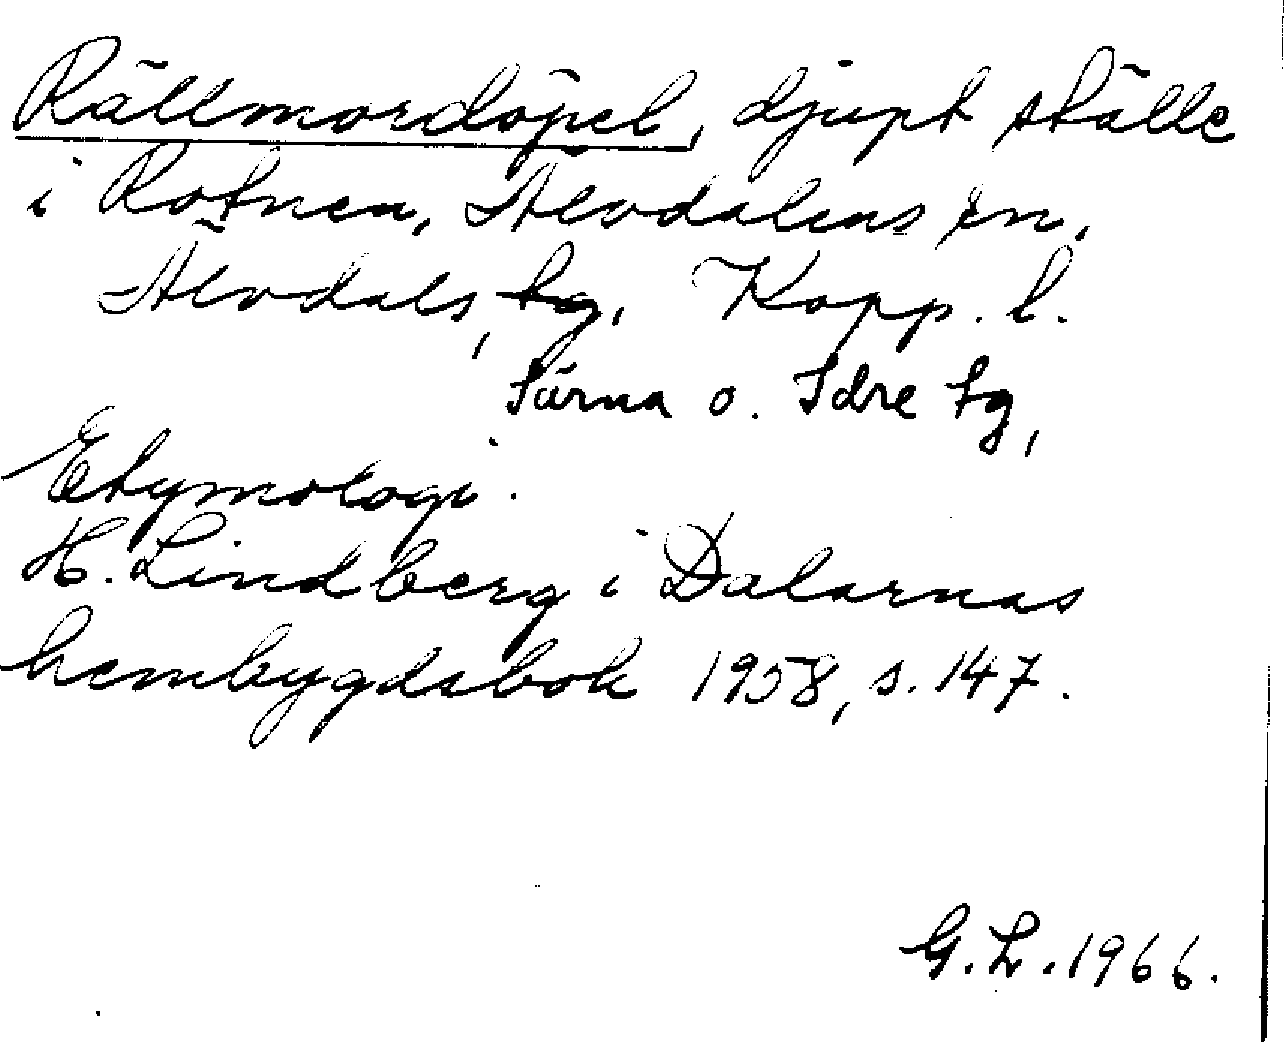 Rällmordöpel, djupt ställe
i Rotnen, Älvdalens sn,
Älvdals, tg, Kopp. l.
Särna o. Idre tg,
Etymologi.
H. Lindberg i Dalarnas
hembygdsbok 1958, s. 147.
G. L. 1966.